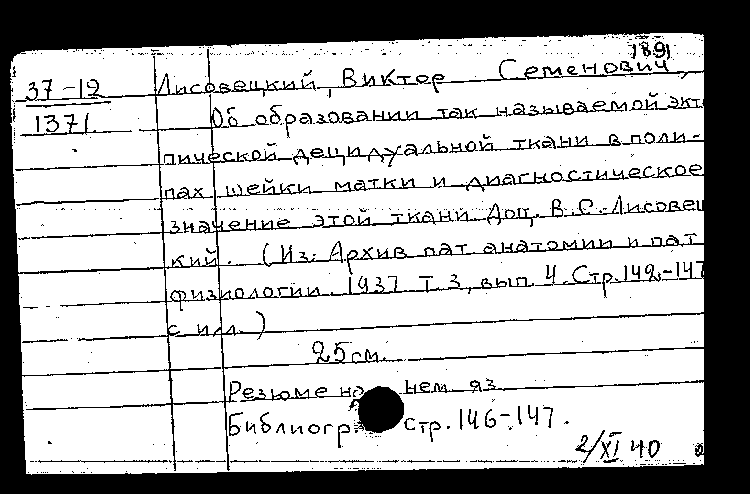 1891
37-12 Лисовецкий, Виктор Семенович,
1371 Об образовании так называемой экто
пической децидуальной ткани в поли-
пах шейки матки и диагностическое
значение этой ткани Доц. В.С. Лисовец
кий. (Из: Архив пат анатомии и пат
физиологии. 1937 Т. 3, вып. 4. Стр. 142-147
с илл.)
25 см.
Резюме на нем яз.
Библиогр. стр. 146-147.
2/XI 40